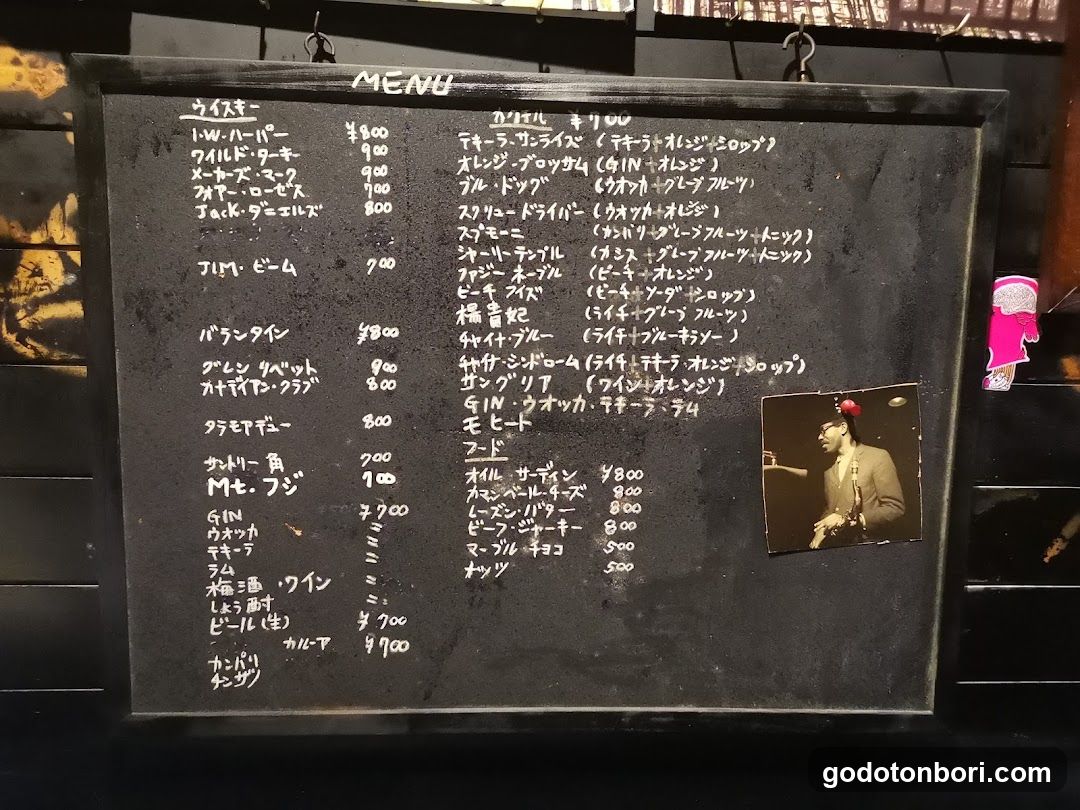 MENU
ウイスキー
I.W.ハーパー ¥800
ワイルド・ターキー 900
メーカーズ・マーク 900
フォアー・ローゼス 700
Jack・ダニエルズ 800
JIM・ビーム 700
バランタイン ¥800
グレン リベット 800
カナディアン・クラブ 800
タラモアデュー 800
サントリー 角 700
Mt.フジ 700
GIN ¥700
ウオッカ 〃
テキーラ 〃
ラム 〃
梅酒・ワイン 〃
しょう酎 〃
ビール(生) ¥700
カルーア ¥700
カンパリ
チンザノ
カクテル ¥700
テキーラ・サンライズ (テキーラ+オレンジ+シロップ)
オレンジ・ブロッサム (GIN+オレンジ)
ブル・ドッグ (ウオッカ+グレープフルーツ)
スクリュードライバー (ウオッカ+オレンジ)
スプモーニ (カンパリ+グレープフルーツ+トニック)
シャーリーテンプル (カシス+グレープフルーツ+トニック)
ファジーネーブル (ピーチ+オレンジ)
ピーチ フイズ (ピーチ+ソーダ+シロップ)
楊貴妃 (ライチ+グレープフルーツ)
チャイナ・ブルー (ライチ+ブルーキラソー)
チャイナ・シンドローム (ライチ+テキーラ・オレンジ+シロップ)
サングリア (ワイン+オレンジ)
GIN・ウオッカ・テキーラ・ラム
モヒート
フード
オイル サーディン ¥800
カマンベール・チーズ 800
レーズン・バター 800
ビーフ・ジャーキー 800
マーブル チョコ 500
ナッツ 500
godotonbori.com